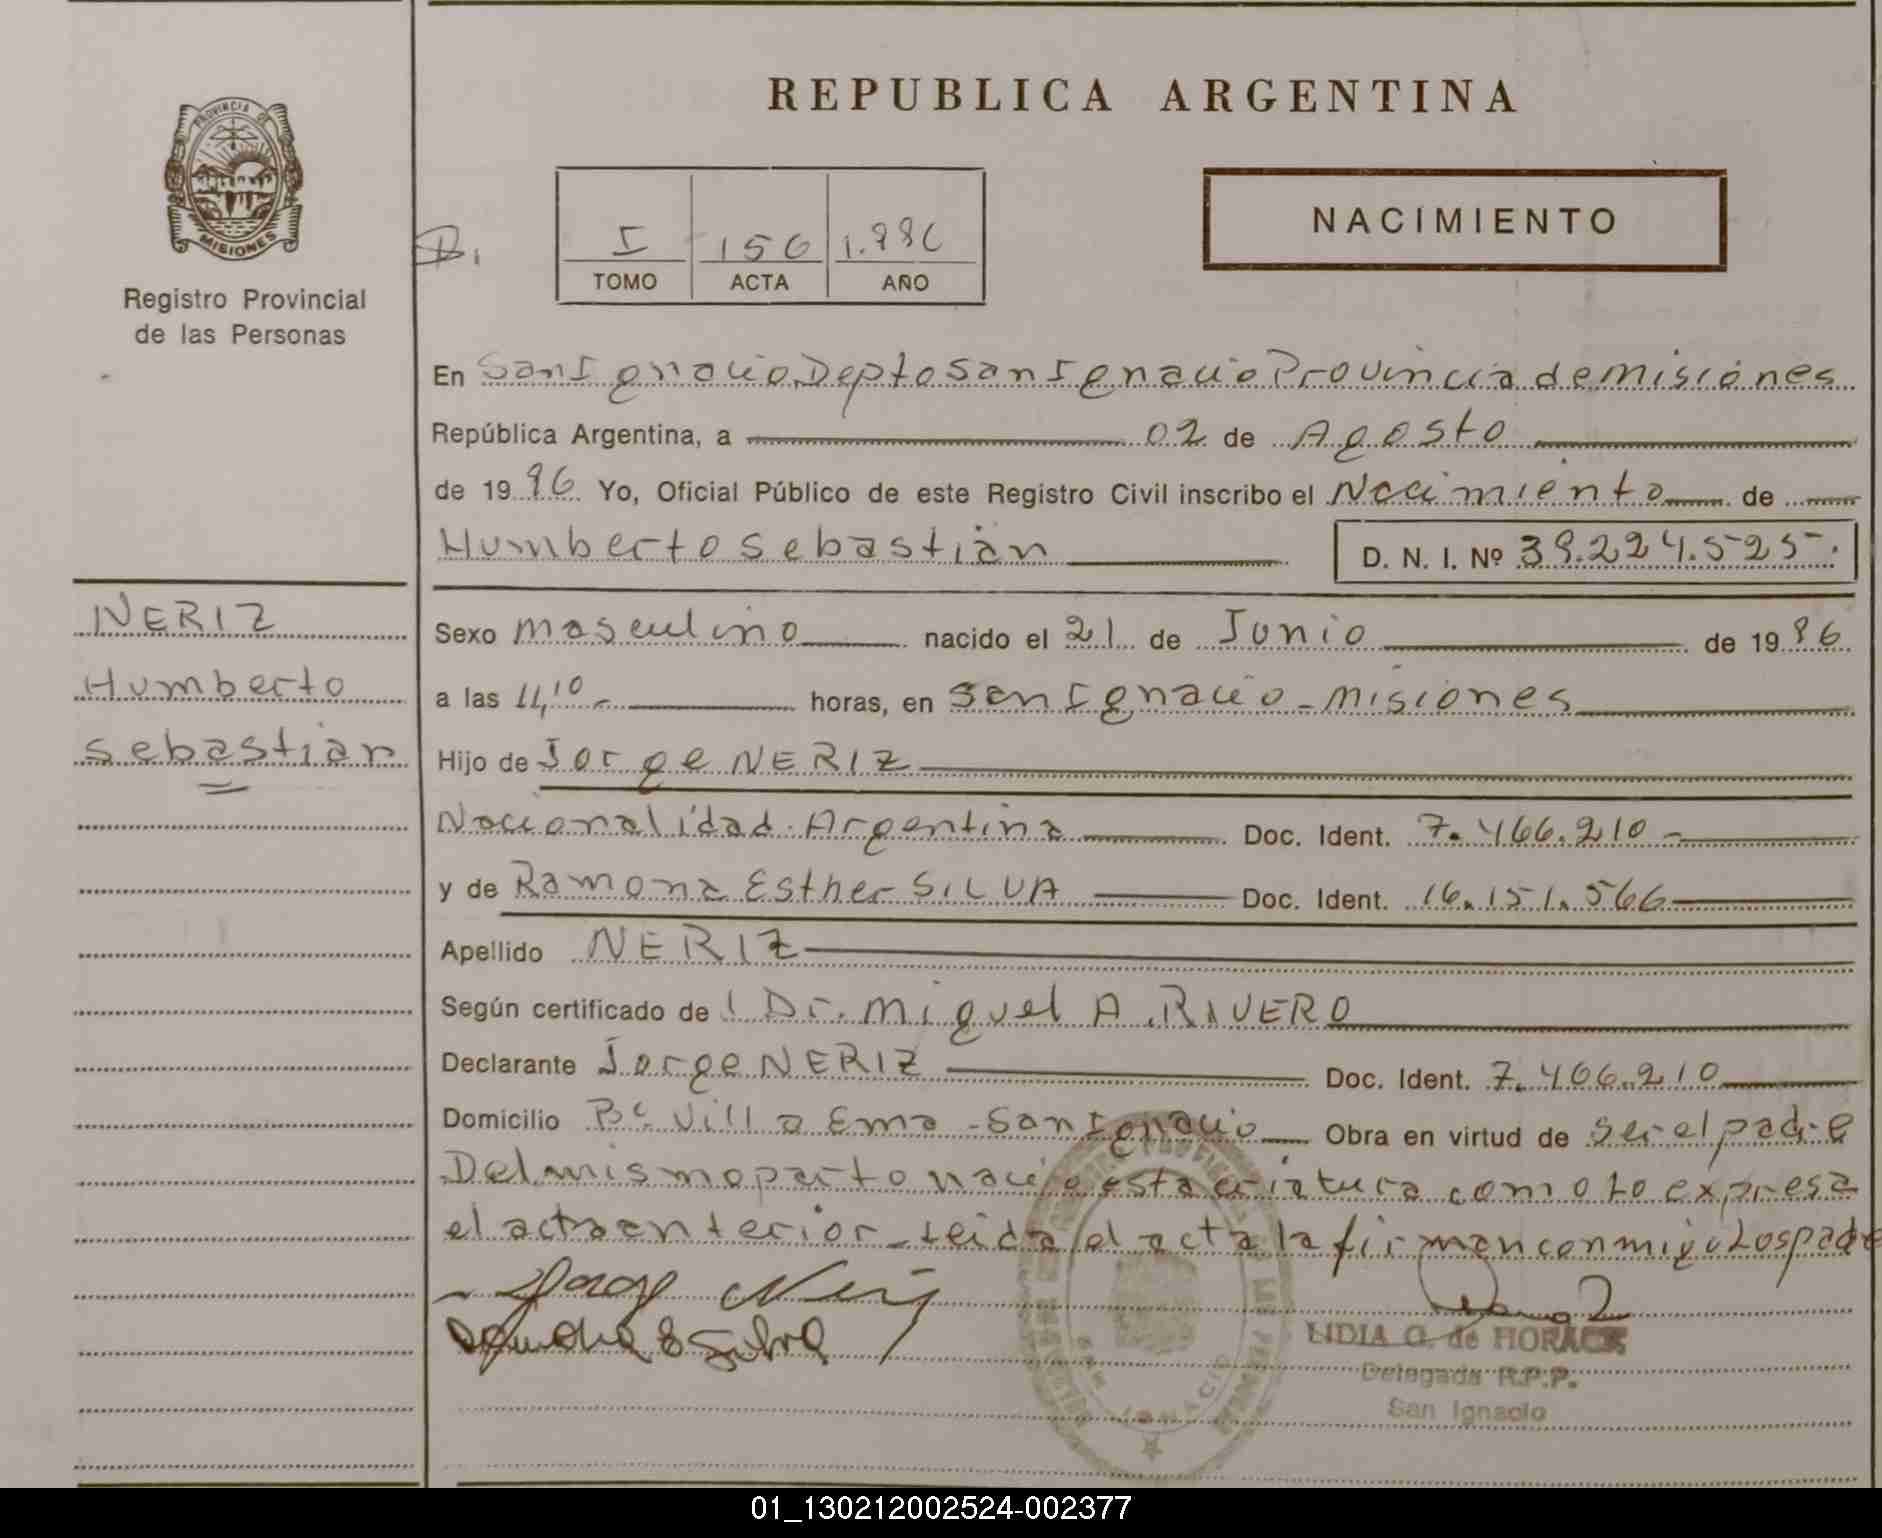 REPUBLICA ARGENTINA
PROVINCIA DE
MISIONES
Registro Provincial
de las Personas
I 156
TOMO ACTA AÑO
NACIMIENTO
En San Ignacio Depto San Ignacio Provincia de Misiones
República Argentina, a 02 de Agosto
de 1996 Yo, Oficial Público de este Registro Civil inscribo el Nacimiento de
Humberto Sebastián
D. N. I. Nº 39.224.525-.
NERIZ
Humberto
Sebastián
Sexo masculino nacido el 21 de Junio de 1996
a las 11,10 - horas, en San Ignacio - Misiones
Hijo de Jorge NERIZ
Nacionalidad Argentina Doc. Ident. 7.466.210 -
y de Ramona Esther SILVA Doc. Ident. 16.151.566
Apellido NERIZ
Según certificado de l Dr. Miguel A. RIVERO
Declarante Jorge NERIZ Doc. Ident. 7.466.210
Domicilio Bº Villa Ema - San Ignacio Obra en virtud de ser el padre
Del mismo parto nació esta criatura como lo expresa
el acta anterior - leida el acta la firman conmigo los padre
LIDIA G. de HORACK
Delegada R.P.P.
San Ignacio
01_130212002524-002377